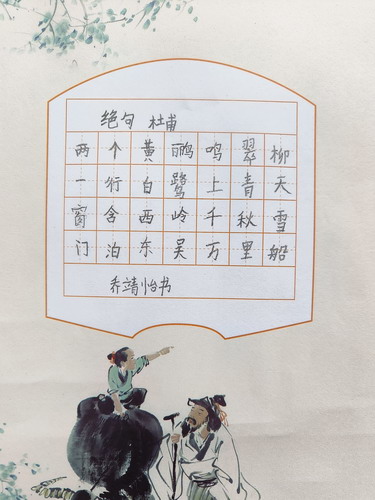 绝句 杜甫
两个黄鹂鸣翠柳
一行白鹭上青天
窗含西岭千秋雪
门泊东吴万里船
乔靖怡书